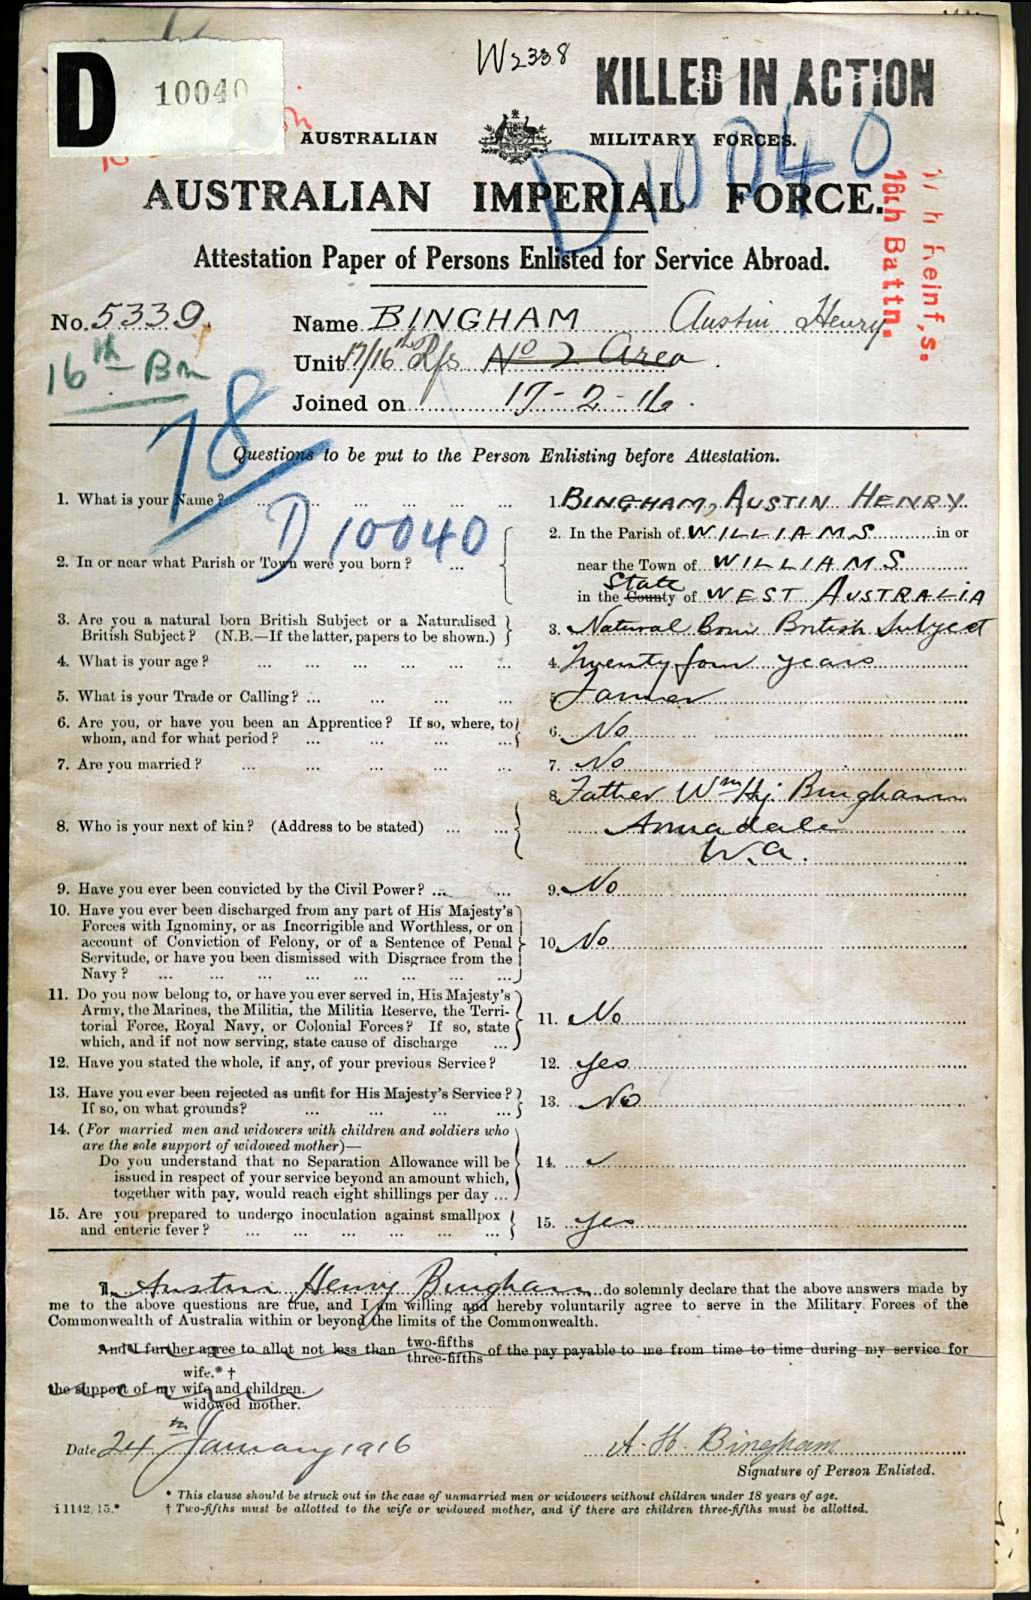 D 10040
W2338
KILLED IN ACTION
AUSTRALIAN MILITARY FORCES.
D 10040
AUSTRALIAN IMPERIAL FORCE.
16th Battn.
Reinf,s.
Attestation Paper of Persons Enlisted for Service Abroad.
No. 5339. Name BINGHAM Austin Henry
16th Bn Unit 17/16th Rfs No 2 Area
Joined on 17-2-16.
78
Questions to be put to the Person Enlisting before Attestation.
1. What is your Name? ... 1. BINGHAM, AUSTIN HENRY
D 10040
2. In or near what Parish or Town were you born? ... 2. In the Parish of WILLIAMS in or
near the Town of WILLIAMS
in the County State of WEST AUSTRALIA
3. Are you a natural born British Subject or a Naturalised
British Subject? (N.B.—If the latter, papers to be shown.) 3. Natural born British Subject
4. What is your age? ... 4. Twenty four years
5. What is your Trade or Calling? ... 5. Farmer
6. Are you, or have you been an Apprentice? If so, where, to
whom, and for what period? ... 6. No
7. Are you married? ... 7. No
8. Father Wm Hy. Bingham
8. Who is your next of kin? (Address to be stated) ... Annadale
W.A.
9. Have you ever been convicted by the Civil Power? ... 9. No
10. Have you ever been discharged from any part of His Majesty's
Forces with Ignominy, or as Incorrigible and Worthless, or on
account of Conviction of Felony, or of a Sentence of Penal
Servitude, or have you been dismissed with Disgrace from the
Navy? ... 10. No
11. Do you now belong to, or have you ever served in, His Majesty's
Army, the Marines, the Militia, the Militia Reserve, the Terri-
torial Force, Royal Navy, or Colonial Forces? If so, state
which, and if not now serving, state cause of discharge ... 11. No
12. Have you stated the whole, if any, of your previous Service? 12. Yes
13. Have you ever been rejected as unfit for His Majesty's Service?
If so, on what grounds? ... 13. No
14. (For married men and widowers with children and soldiers who
are the sole support of widowed mother)—
Do you understand that no Separation Allowance will be
issued in respect of your service beyond an amount which,
together with pay, would reach eight shillings per day ... 14. ✓
15. Are you prepared to undergo inoculation against smallpox
and enteric fever? ... 15. Yes
I, Austin Henry Bingham do solemnly declare that the above answers made by
me to the above questions are true, and I am willing and hereby voluntarily agree to serve in the Military Forces of the
Commonwealth of Australia within or beyond the limits of the Commonwealth.
And I further agree to allot not less than two-fifths three-fifths of the pay payable to me from time to time during my service for
wife.* †
the support of my wife and children.
widowed mother.
Date 24th January 1916 A. H. Bingham
Signature of Person Enlisted.
* This clause should be struck out in the case of unmarried men or widowers without children under 18 years of age.
† Two-fifths must be allotted to the wife or widowed mother, and if there are children three-fifths must be allotted.